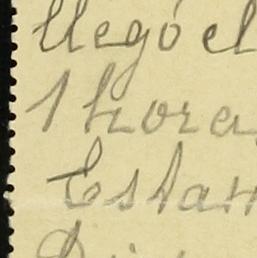 llegó el
1 hora
Estan